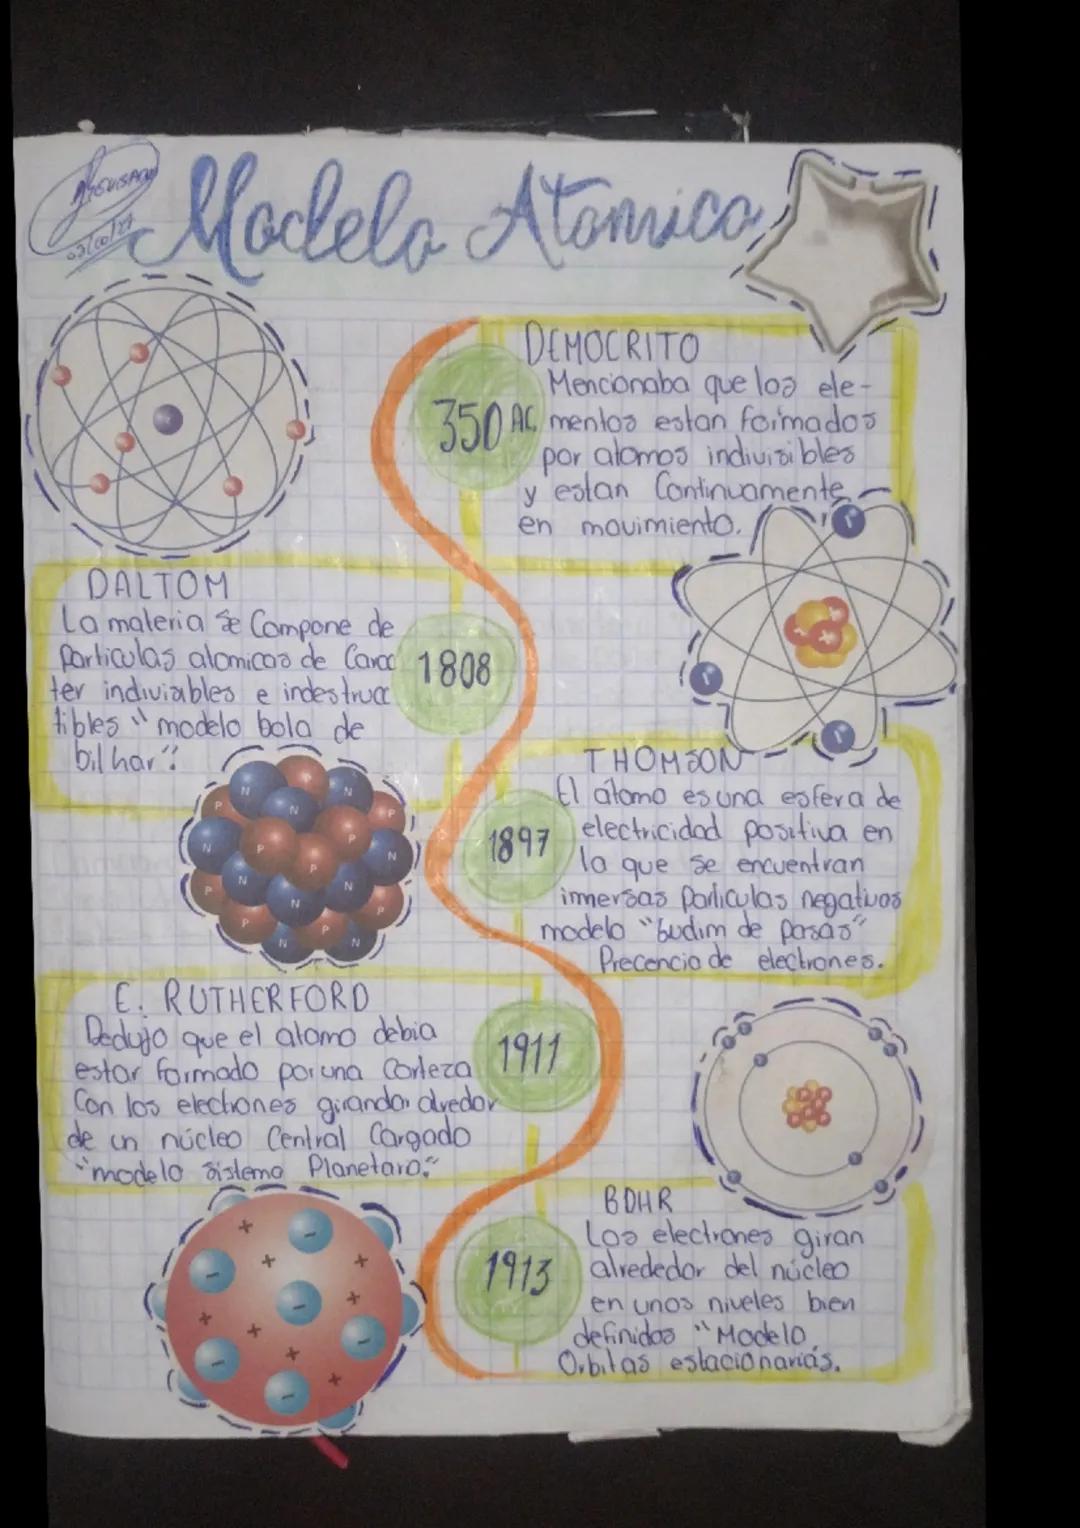 Modelo Atomico
DEMOCRITO
Mencionaba que los ele-
350 AC
mentos estan formados
por atomos indivisibles
y estan Continuamente
en movimiento.
DALTOM
La materia se Compone de
Particulas atomicas de Carac
1808
ter indiviables e indestruc
tibles "modelo bola de
bilhar"
THOMSON
El átomo es una esfera de
1897
electricidad positiva en
la que se encuentran
inmersas Particulas negativas
modelo "budim de pasas"
Precencia de electrones.
E. RUTHERFORD
Dedujo que el atomo debia
1911
estar formado por una Corteza
Con los electrones girando alredor
de un núcleo Central Cargado
"modelo Sistema Planetaro."
BOHR
Los electrones giran
1913
alrededor del núcleo
en unos niveles bien
definidos "Modelo
Orbitas estacionarias.